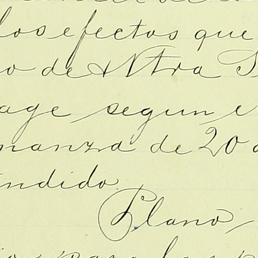 los efectos que
o de Ntra S
age segun e
nanza de 20 d
ndido
Plano,